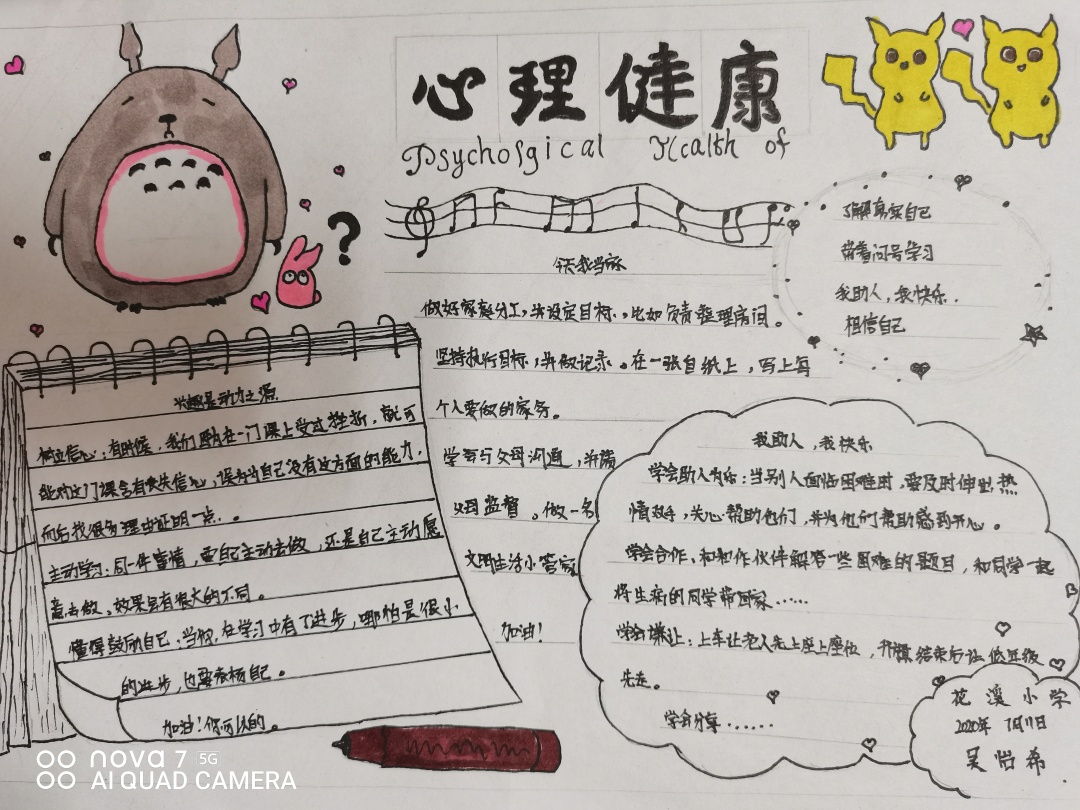 心理健康
Psycholgical Health of
了解真实自己
带着问号学习
我助人，我快乐.
相信自己
今天我当家
做好家务分工，并设定目标，比如负责整理房间。
坚持执行目标，并做记录。在一张白纸上，写上每
个人要做的家务。
学会与父母沟通，并请
父母监督。做一名
文明生活小管家
加油！
兴趣是动力之源
树立信心：有时候，我们因在一门课上受过挫折，就可
能对这门课会有丧失信心，误为自己没有这方面的能力，
而后找很多理由证明一点。
主动学习：同一件事情，要自己主动去做，还是自己主动愿
意去做，效果会有很大的不同。
懂得鼓励自己：当你在学习中有了进步，哪怕是很小
的进步，也要表扬自己。
加油！你可以的。
我助人，我快乐
学会助人为乐：当别人面临困难时，要及时伸出热
情双手，关心帮助他们，并为他们帮助感到开心。
学会合作，和和作伙伴解答一些困难的题目，和同学一起
将生病的同学带回家……
学会谦让：上车让老人先上座上座位，结束后让低年级
先走。
学会分享……
花溪小学
2020年 7月11日
吴怡希
nova 7 5G
AI QUAD CAMERA